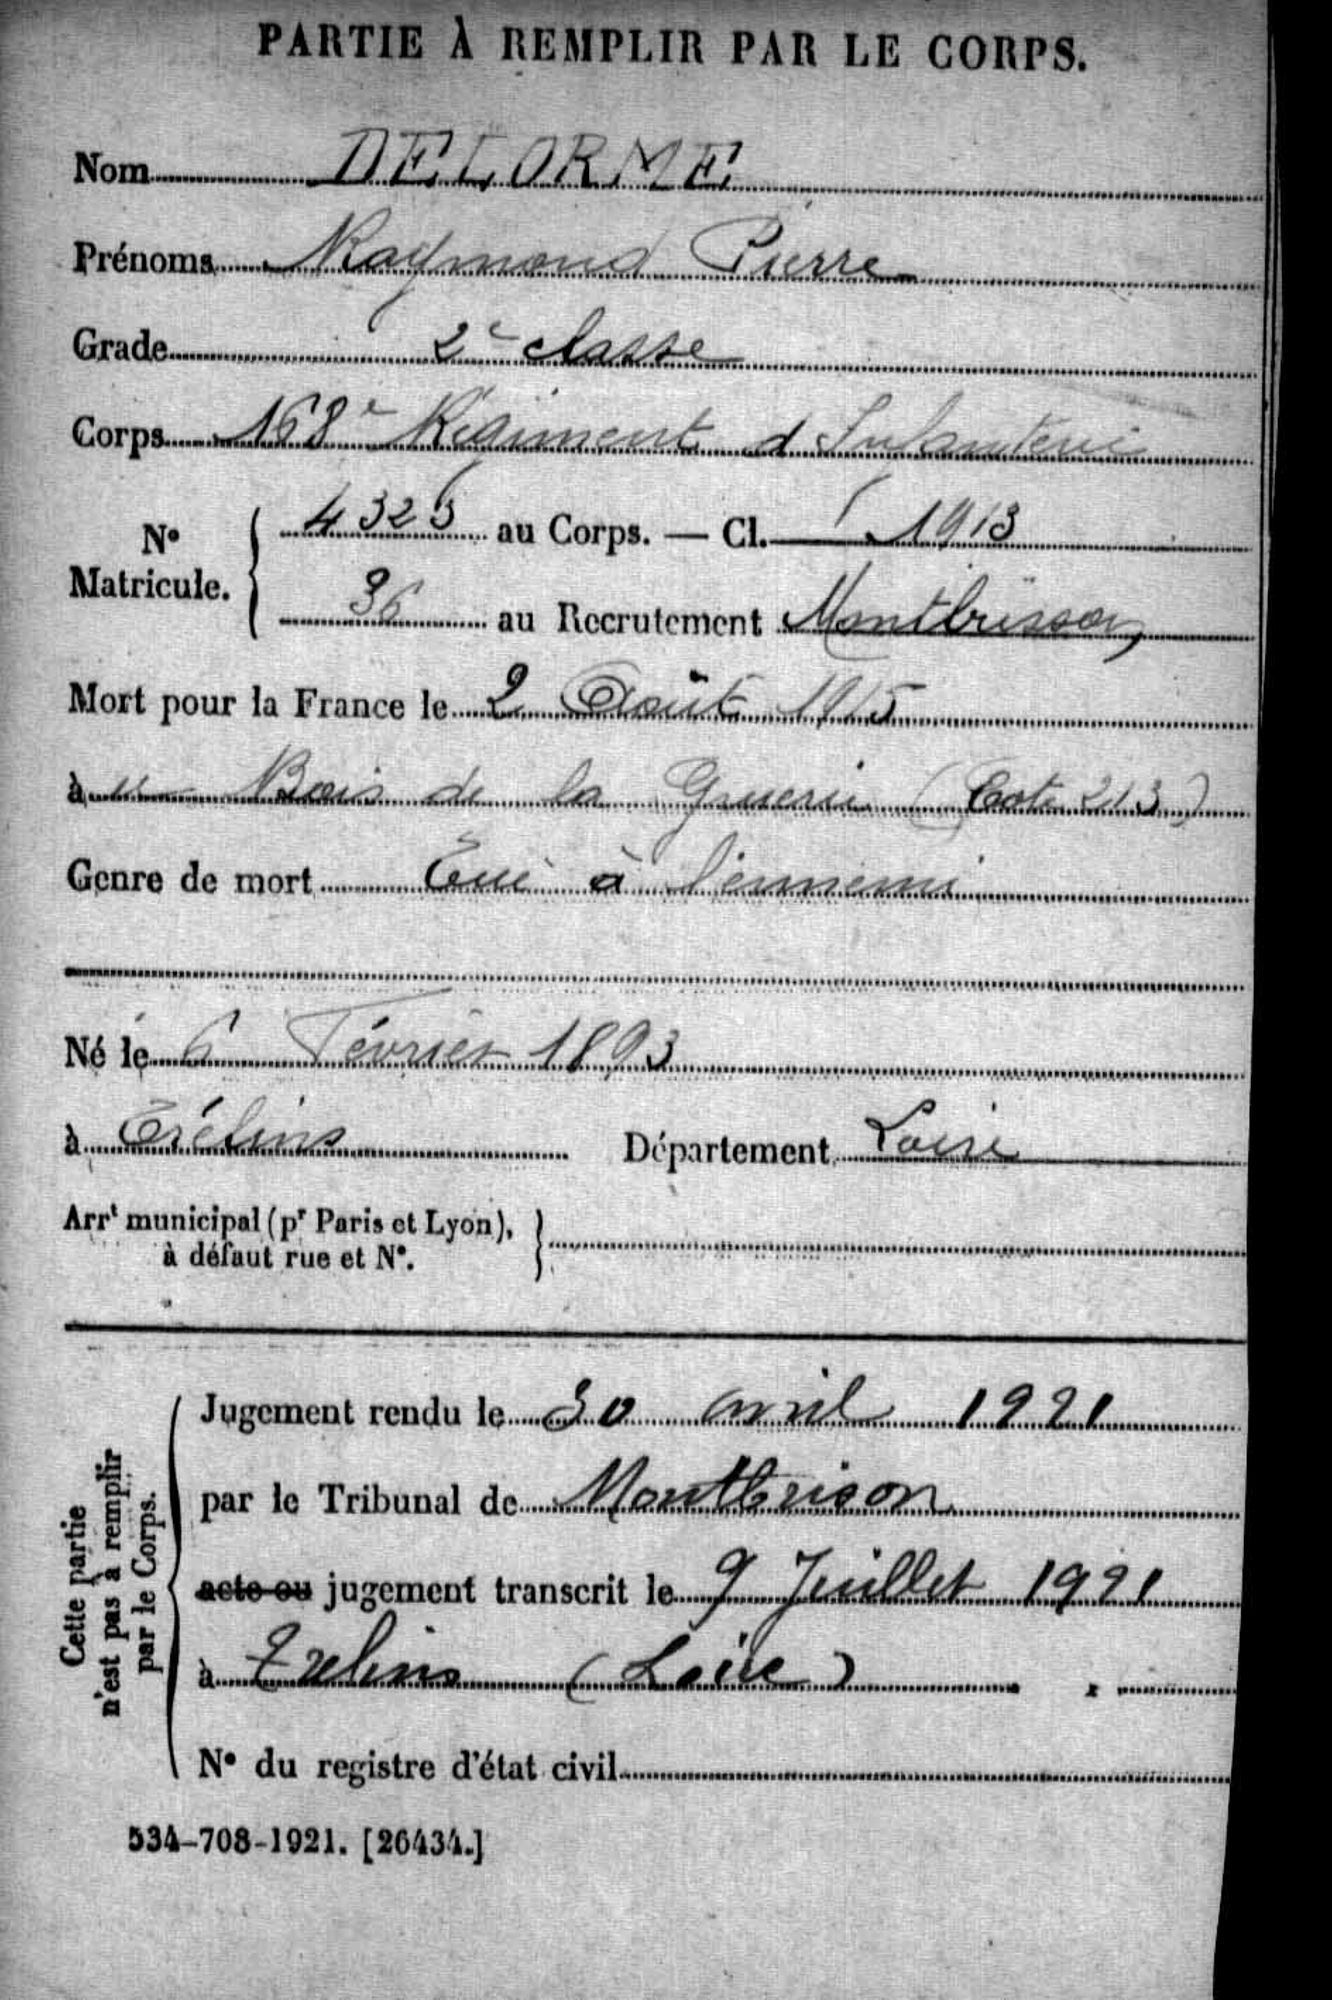 PARTIE À REMPLIR PAR LE CORPS.
Nom DELORME
Prénoms Raymond Pierre
Grade 2e classe
Corps 168e Régiment d Infanterie
No Matricule. { 4325 au Corps. — Cl. 1913
36 au Recrutement Montbrison
Mort pour la France le 2 Août 1915
à u Bois de la Gruerie (Cote 213)
Genre de mort Tué à l'ennemi
Né le 6 Février 1893
à Trélins Département Loire
Arrt municipal (pr Paris et Lyon),
à défaut rue et No.
Cette partie n'est pas à remplir par le Corps.
Jugement rendu le 30 avril 1921
par le Tribunal de Montbrison
acte ou jugement transcrit le 9 Juillet 1921
à Trelins (Loire)
No du registre d'état civil
534-708-1921. [26434.]